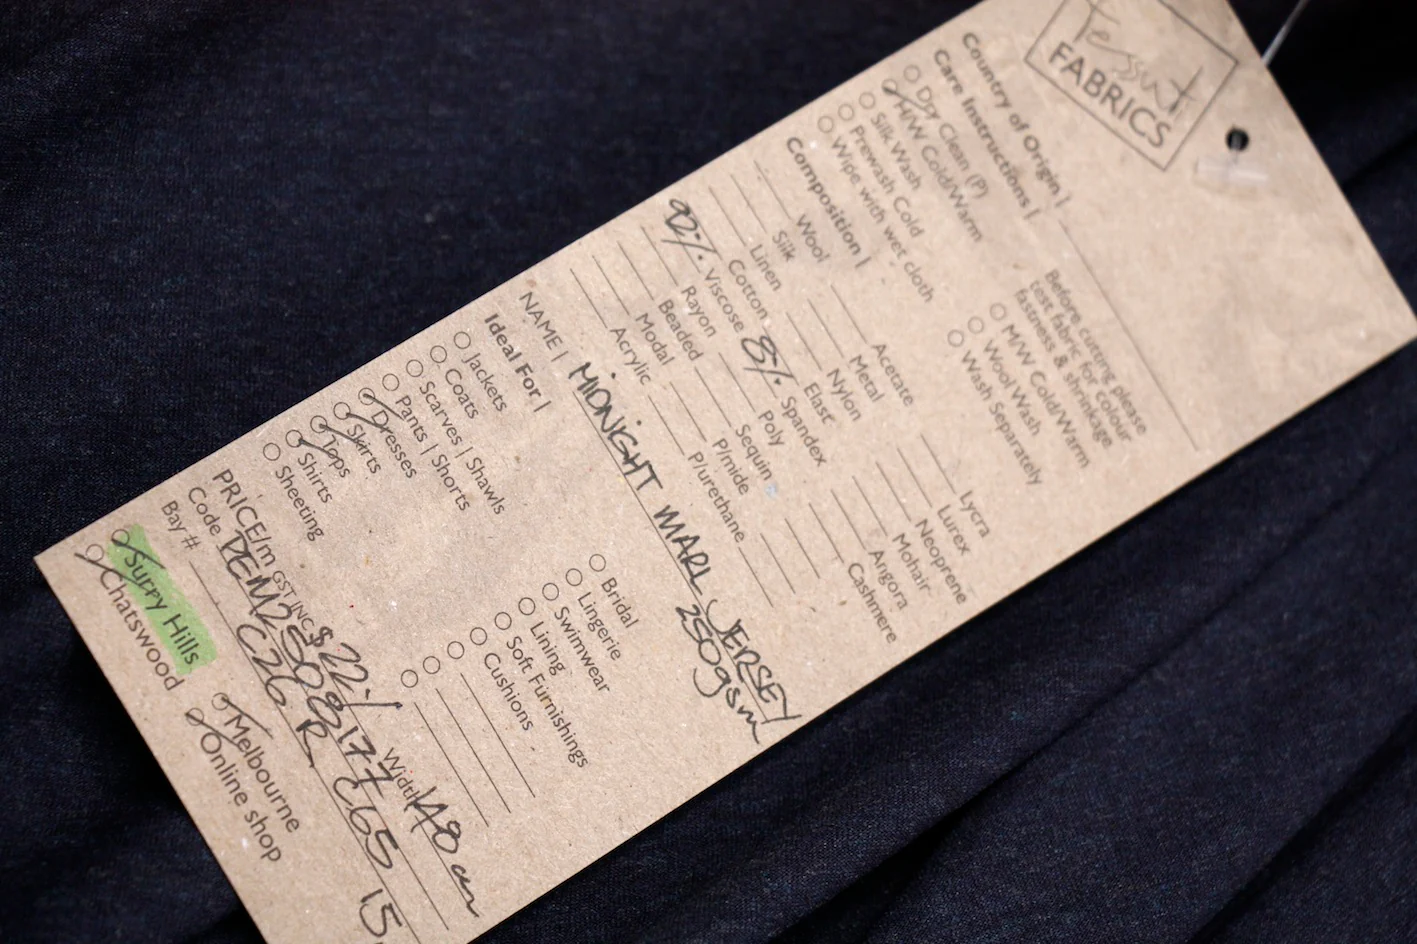 Tessuti
FABRICS
Country of Origin |
Care Instructions |
Dry Clean (P)
H/W Cold/Warm
Silk Wash
Prewash Cold
Wipe with wet cloth
Before cutting please
test fabric for colour
fastness & shrinkage
M/W Cold/Warm
Wool Wash
Wash Separately
Composition |
Wool
Silk
Linen
Cotton
92% Viscose
Rayon
Beaded
Modal
Acrylic
Acetate
Metal
Nylon
Elast
8% Spandex
Poly
Sequin
P/mide
P/urethane
Lycra
Lurex
Neoprene
Mohair
Angora
Cashmere
NAME | MIDNIGHT MARL JERSEY
250gsm
Ideal For |
Jackets
Coats
Scarves | Shawls
Pants | Shorts
Dresses
Skirts
Tops
Shirts
Sheeting
Bridal
Lingerie
Swimwear
Lining
Soft Furnishings
Cushions
PRICE/m GST INC $22 Width 140cm
Code
Bay #
Surry Hills
Chatswood
Melbourne
Online shop